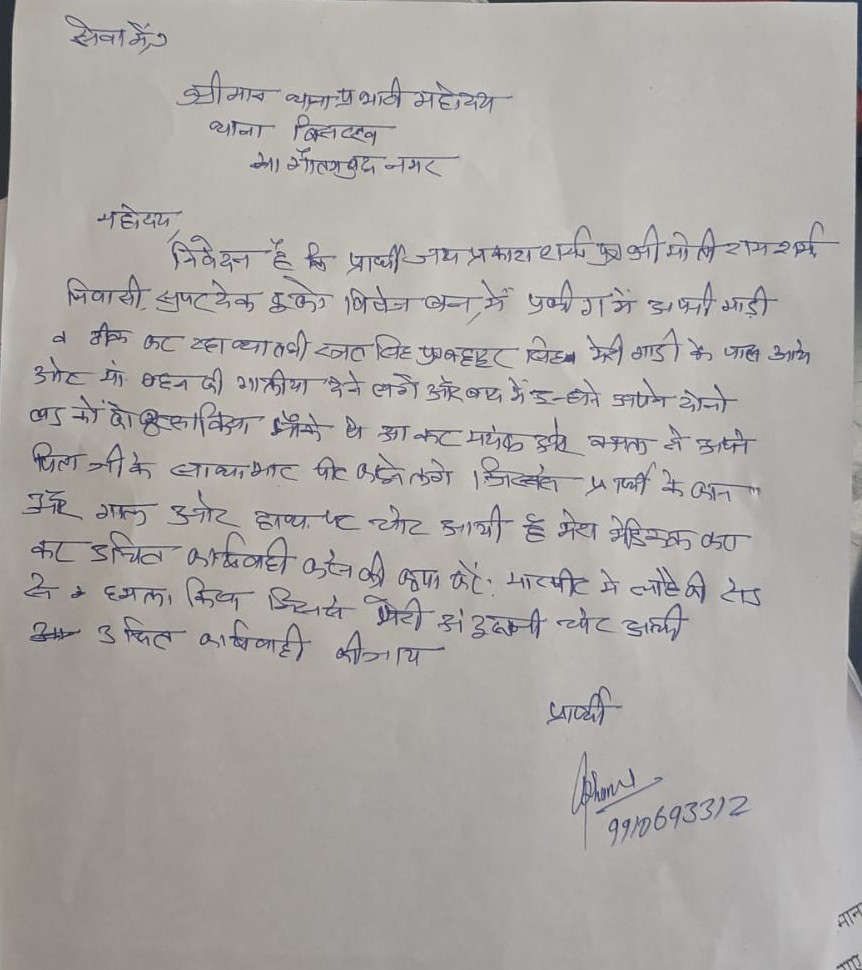 सेवा में,
श्रीमान थाना प्रभारी महोदय
थाना बिसरख
गौतमबुद्ध नगर
महोदय,
निवेदन है कि प्रार्थी जय प्रकाश शर्मा पुत्र श्री मोती राम शर्मा
निवासी सुपरटेक इको विलेज वन, में पार्किंग में अपनी गाड़ी
कर रहा था तभी सिंह मेरी गाडी के पास आये
और मां बहन की गालीया देने लगे और बाद में उन्होंने अपने दोनो
लडकों को मौके पे आकर मयंक और ने अपने
पिता जी के साथ मारपीट करने लगे। जिससे प्रार्थी के कान
और गाल और हाथ पर चोट आयी है मेरा मेडिकल करा
कर उचित कार्यवाही करने की कृपा करें. मारपीट में लोहे की राड
से हमला किया जिससे मेरी चोट आयी
उचित कार्यवाही की जाय
प्रार्थी
9910693312
मान